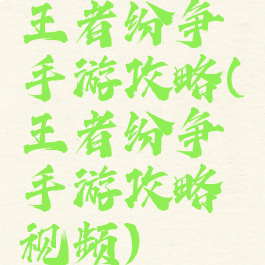 王者纷争
手游攻略(
王者纷争
手游攻略
视频)